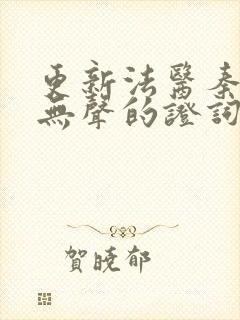 更新法醫秦
無聲的證詞
賀曉郁